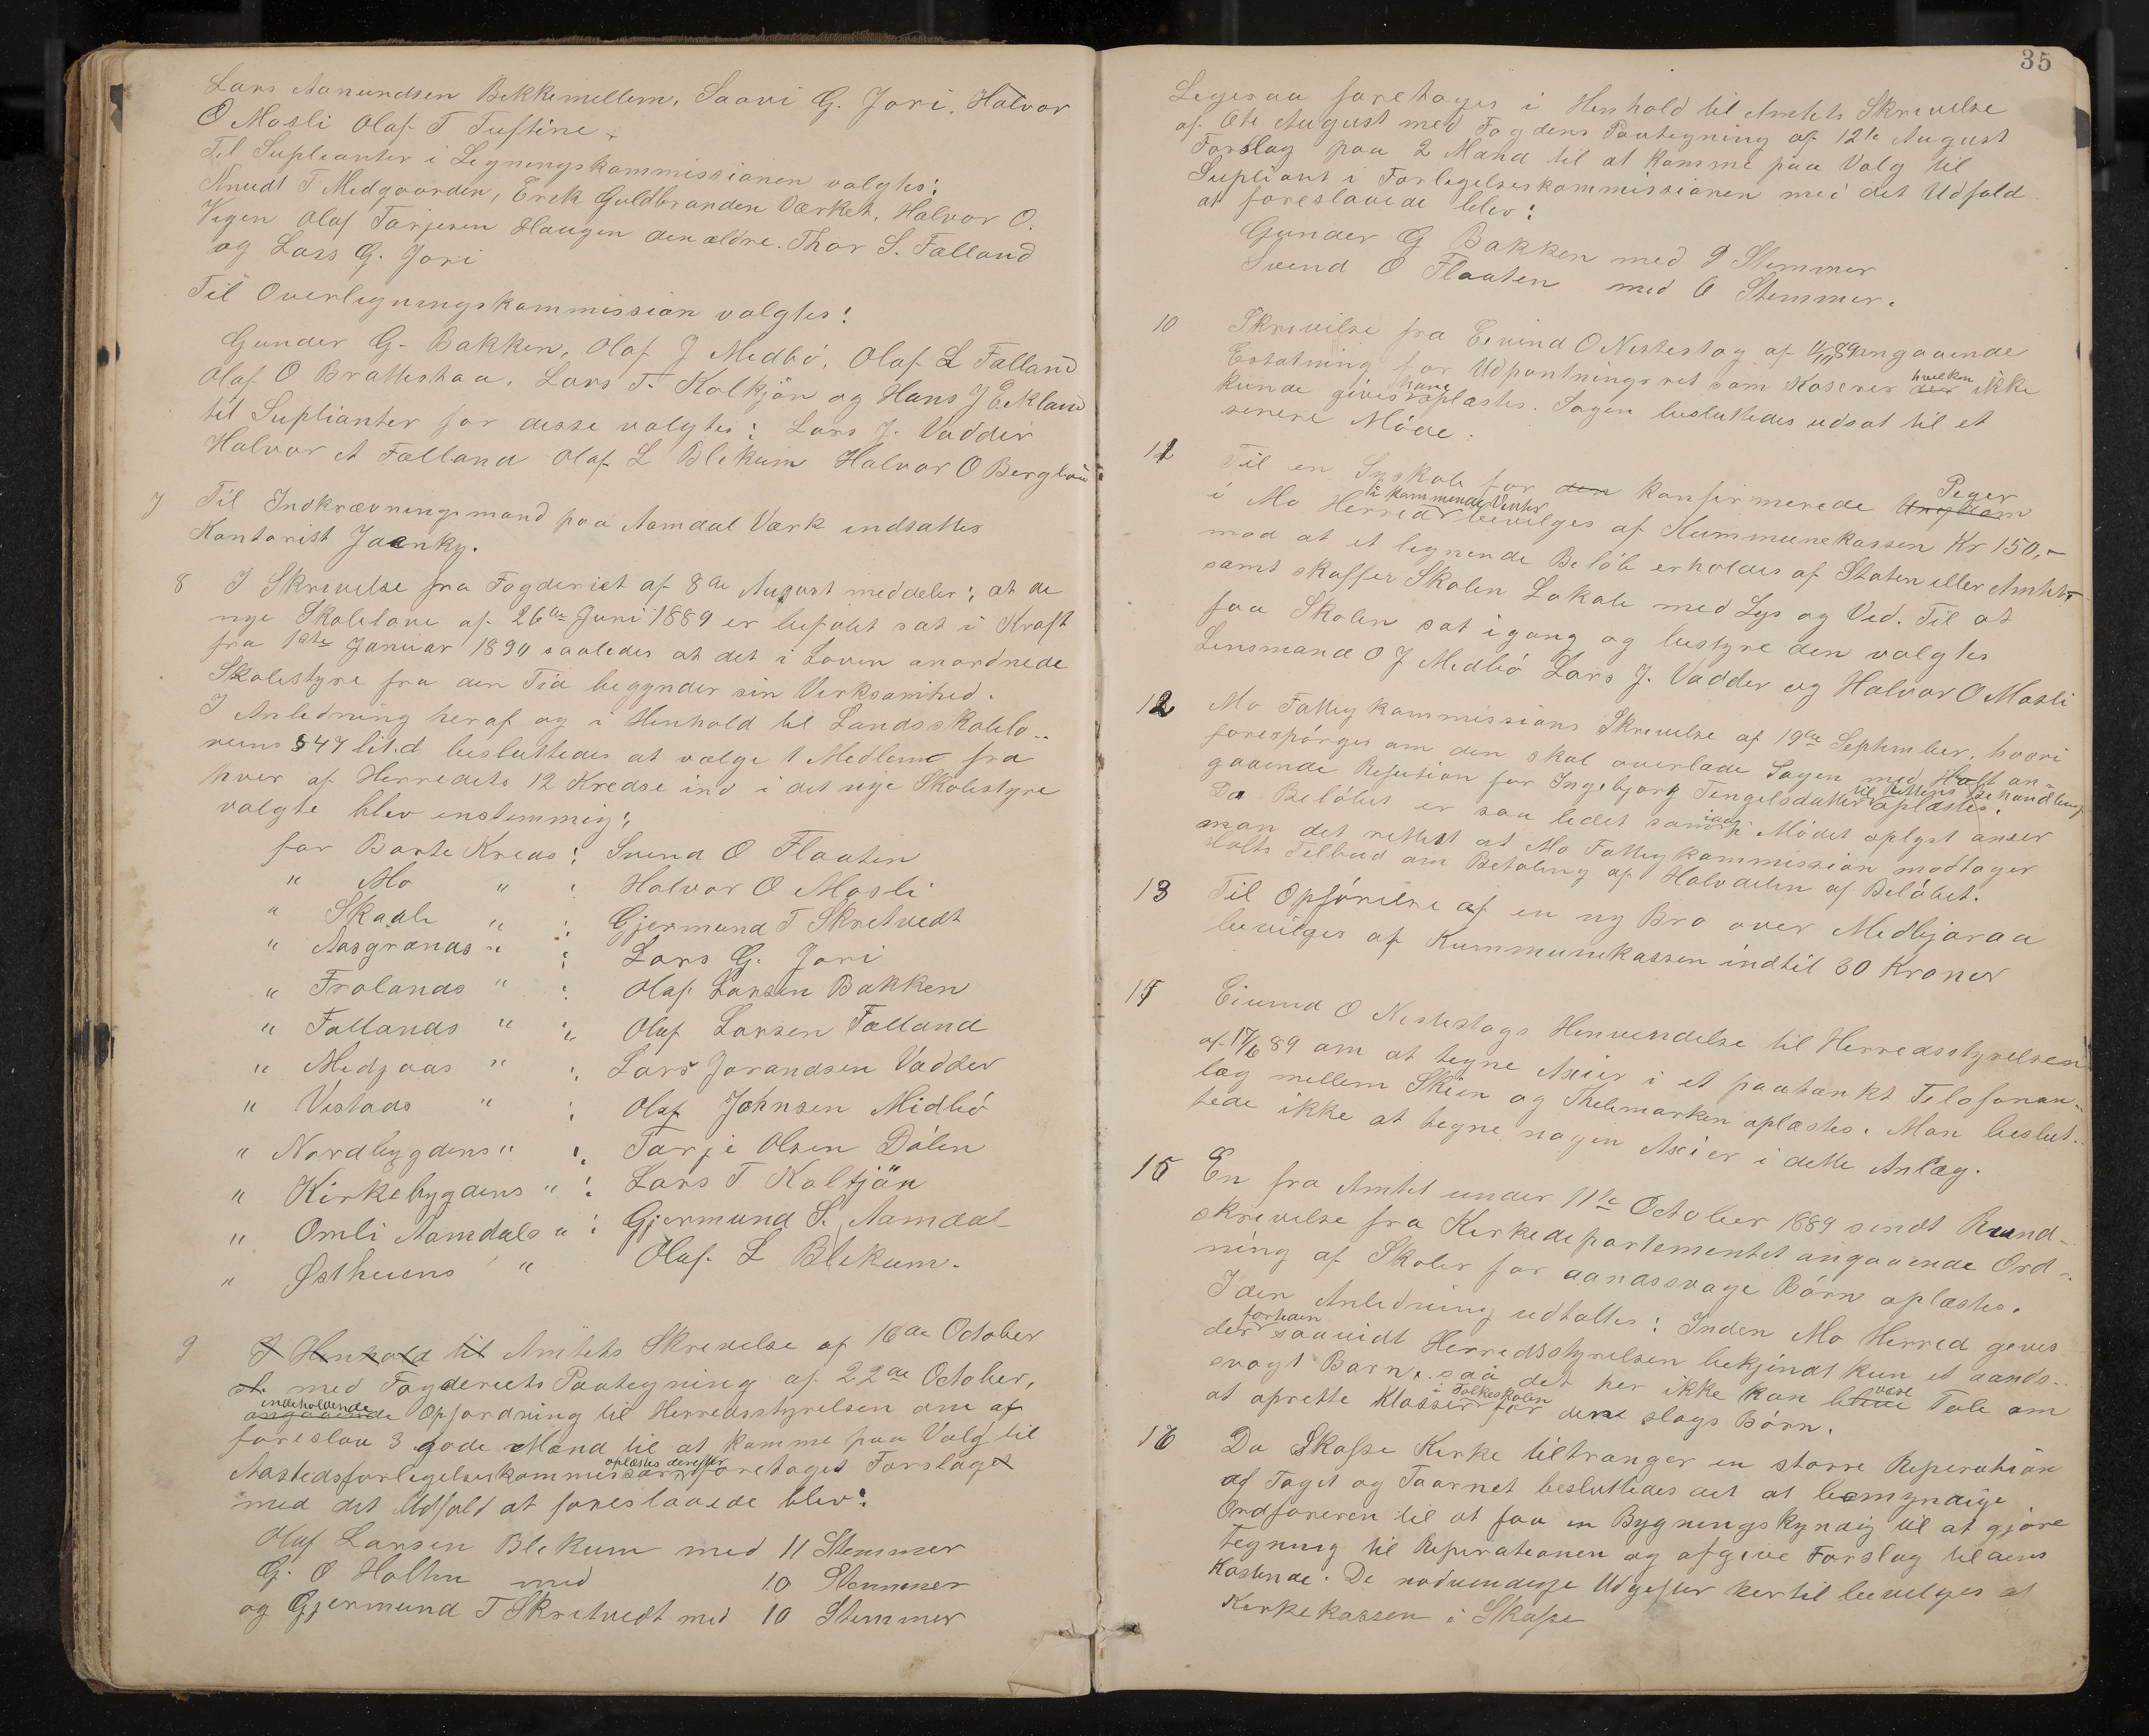 Lars Aanundsen Bekkemellem, Saavi G. Jori. Halvor
O Mosli Olaf T Tuftine.
Til Suplianter i Ligningskommissionen valgtes:
Knudt T Midgaarden, Erik Guldbranden Værket. Halvor O.
Vegen Olaf Tarjesen Haugen den ældre. Thor S. Falland
og Lars G. Jori
Til Overligningskommission valgtes:
Gunder G. Bakken, Olaf J Medbö, Olaf L Falland
Olaf O Brattestaa, Lars T. Kolkjön og Hans J Eekland
til Suplianter for disse valgtes: Lars J. Vadder
Halvor A Falland Olaf L Blekum Halvor O Bergland
7 Til Indkrævningsmand paa Aamdal Værk indsattes
Kontorist Jaenky.
8 I Skrivelse fra Fogderiet af 8de August meddeler: at de
nye Skolelove af 26de Juni 1889 er befalet sat i Kraft
fra 1ste Januar 1890 saaledes at det i Loven anordnede
Skolestyre fra den Tid begynder sin Virksomhed.
I Anledning heraf og i Henhold til Landsskolelo-
vens § 47 lit.d besluttedes at vælge 1 Medlem fra
hver af Herredets 12 Kredse ind i det nye Skolestyre
valgte blev enstemmig:
for Barte Kreds: Svend O Flaaten
" Mo " : Halvor O Mosli
" Skaale " : Gjermund T Skretvedt
" Aasgrænds " : Lars G. Jori
" Frolands " : Olaf Larsen Bakken
" Fallands " : Olaf Larsen Falland
" Midgaas " : Lars Jorandsen Vadder
" Vistads " : Olaf Johnsen Midbö
" Nordbygdens " : Tarje Olsen Dölen
" Kirkebygdens " : Lars T Koltjön
" Omli Aamdals " : Gjermund S. Aamdal
" Østheiens " Olaf L Blekum.
9 I Henhold til Amtets Skrivelse af 16de October
med Fogderiets Paategning af 22de October,
indeholdende
angaaende Opfordring til Herredsstyrelsen om at
foreslaa 3 gode Mænd til at komme paa Valg til
oplæstes derefter
Aastedsforligelseskommissær foretoges Forslaget
med det Udfald at foreslaaede blev:
Olaf Larsen Blekum med 11 Stemmer
G. O Holtun med 10 Stemmer
og Gjermund T Skretvedt med 10 Stemmer
35
Ligesaa foretoges i Henhold til Amtets Skrivelse
af 6te August med Fogdens Paategning af 12te August
Forslag paa 2 Mænd til at komme paa Valg til
Supliant i Forligelseskommissionen med det Udfald
at foreslaaede blev:
Gunder G Bakken med 9 Stemmer
Svend O Flaaten med 6 Stemmer.
10 Skrivelse fra Eivind O Nestestog af angaaende
Erstatning for Udpantningsret som Kaserer der hvilken ikke
kunde gives have oplæstes. Sagen besluttedes udsat til et
senere Möde.
11 Til en Syskole for den konfirmerede Ungdom Peger
i Mo Herred i kommende Vinter bevilges af Kummunekassen Kr 150,-
mod at et lignende Belöb erholdes af Staten eller Amtet
samt skaffer Skolen Lokale med Lys og Ved. Til at
faa Skolen sat igang og bestyre den valgtes
Lensmand O J Medbö Lars J. Vadder og Halvor O Mosli
12 Mo Fattigkommissions Skrivelse af 19de September, hvori
forespörges om den skal overlade Sagen med Holt an-
gaaende Refusion for Ingebjorg Tengelsdatter til Rettens Behandling oplæstes.
Da Belöbet er saa lidet som idag i Mödet oplyst anser
man det rettest at Mo Fattigkommission modtager
Holts Tilbud om Betaling af Halvdelen af Belöbet.
13 Til Opförelse af en ny Bro over Medbjøraa
bevilges af Kummunekassen indtil 30 Kroner
15 Eivind O Nestestogs Henvendelse til Herredsstyrelsen
af 17/6 89 om at tegne Axier i et paatænkt Telefonan-
læg mellem Skien og Thelemarken oplæstes. Man beslut-
tede ikke at tegne nogen Axier i dette Anlæg.
15 En fra Amtet under 11te October 1889 sendt Rund-
skrivelse fra Kirkedepartementet angaaende Ord-
ning af Skoler for aandssvage Börn oplæstes.
I den Anledning udtaltes: Inden Mo Herred geves
der forhaan saavidt Herredsstyrelsen bekjendt kun et aands-
svagt Barn, saa det her ikke kan blive være Tale om
at oprette Klasser i Folkeskolen for dene slags Börn.
16 Da Skafse Kirke tiltrænger en större Reperation
af Taget og Taarnet besluttedes det at bemyndige
Ordföreren til at faa en Bygningskyndig til at gjöre
Tegning til Reperationen og afgive Forslag til dens
Kostende. De nödvendige Udgifter hertil bevilges af
Kirkekassen i Skafse